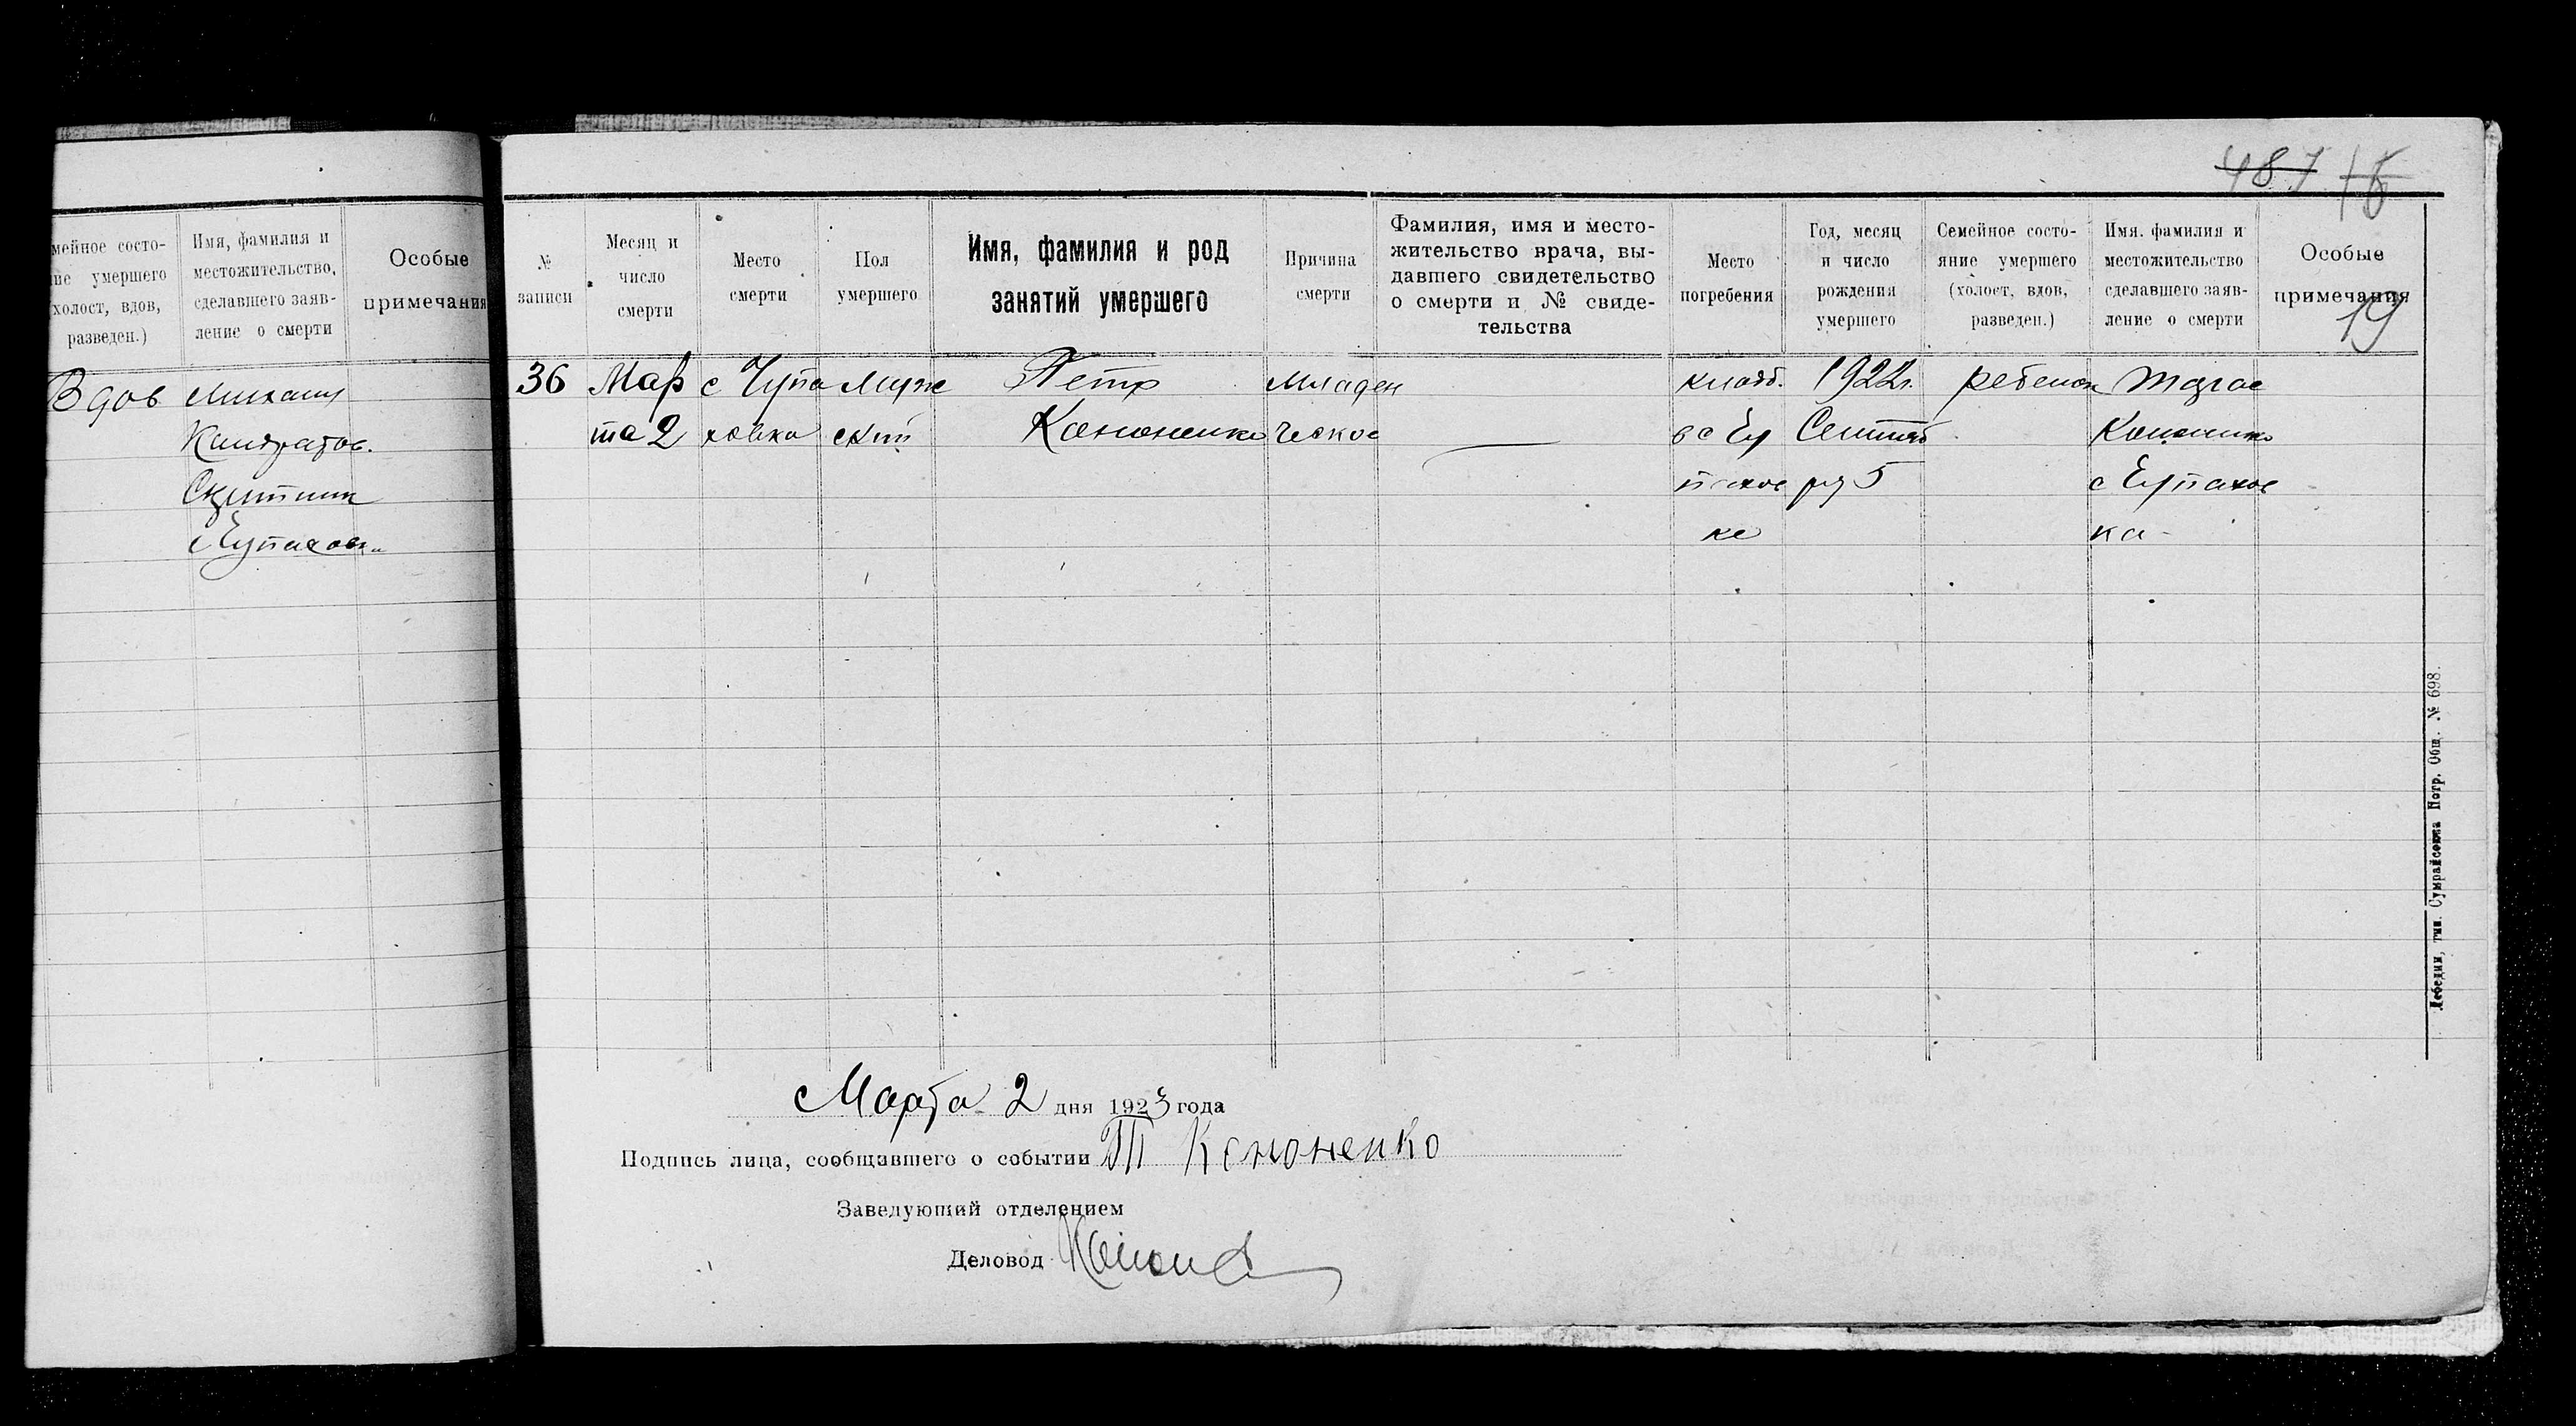 487 15
19
мейное состо-
ние умершего
холост, вдов,
разведен.)
Имя, фамилия и
местожительство,
сделавшего заяв-
ление о смерти
Особые
примечания
Вдов
Михаил
Кандратов.
с Чупаховк
№
записи
Месяц и
число
смерти
Место
смерти
Пол
умершего
Имя, фамилия и род
занятий умершего
Причина
смерти
Фамилия, имя и место-
жительство врача, вы-
давшего свидетельство
о смерти и № свиде-
тельства
Место
погребения
Год, месяц
и число
рождения
умершего
Семейное состо-
яние умершего
(холост, вдов,
разведен.)
Имя. фамилия и
местожительство
сделавшего заяв-
ление о смерти
Особые
примечания
36
Мар
та 2
с Чупа
ховка
Муж
ский
Петр
Кононенко
Младен
ческое
кладб.
в с Чу
пахов
ке
1922г.
Сентяб
ря 5
ребенок
Кононенко
с Чупахов
ка-
Марта 2 дня 1923 года
Подпись лица, сообщившего о событии Т Кононенко
Заведующий отделением
Деловод
Лебедин, тип. Сумрайсоюза Потр. Общ. № 698.